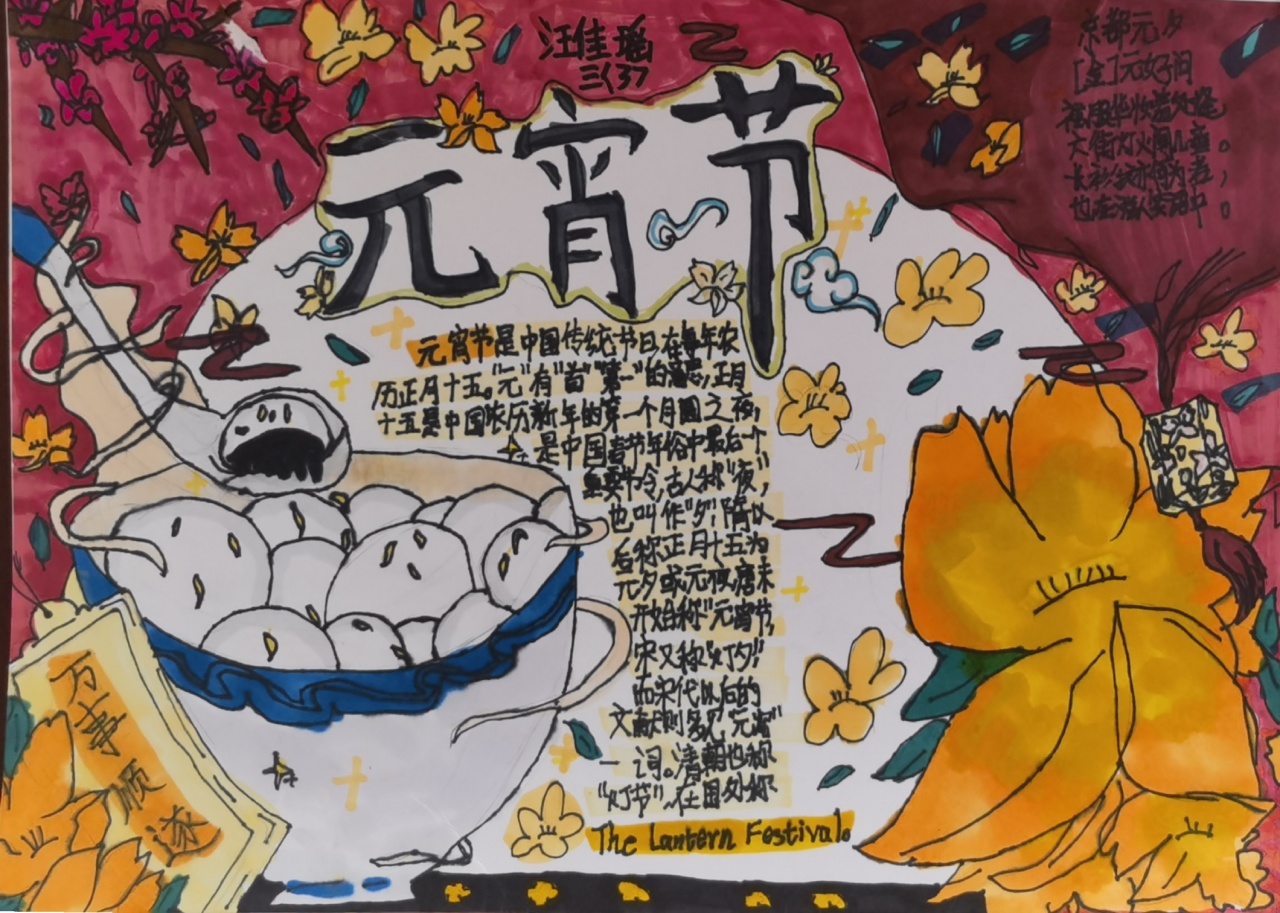 汪佳瑶
三(3)
元宵节
京都元夕
[金]元好问
袨服华妆着处逢
六街灯火闹儿童。
长衫我亦何为者，
也在游人笑语中。
元宵节是中国传统节日,在每年农
历正月十五。"元"有"首""第一"的意思,正月
十五是中国农历新年的第一个月圆之夜,
是中国春节年俗中最后一个
重要节令,古人称"夜",
也叫作"夕",隋以
后称正月十五为
元夕或元夜,唐末
开始称"元宵节,
宋又称"灯夕"
而宋代以后的
文献则多见"元宵"
一词。清朝也称
"灯节",在国外称
The Lantern Festival。
万事顺遂